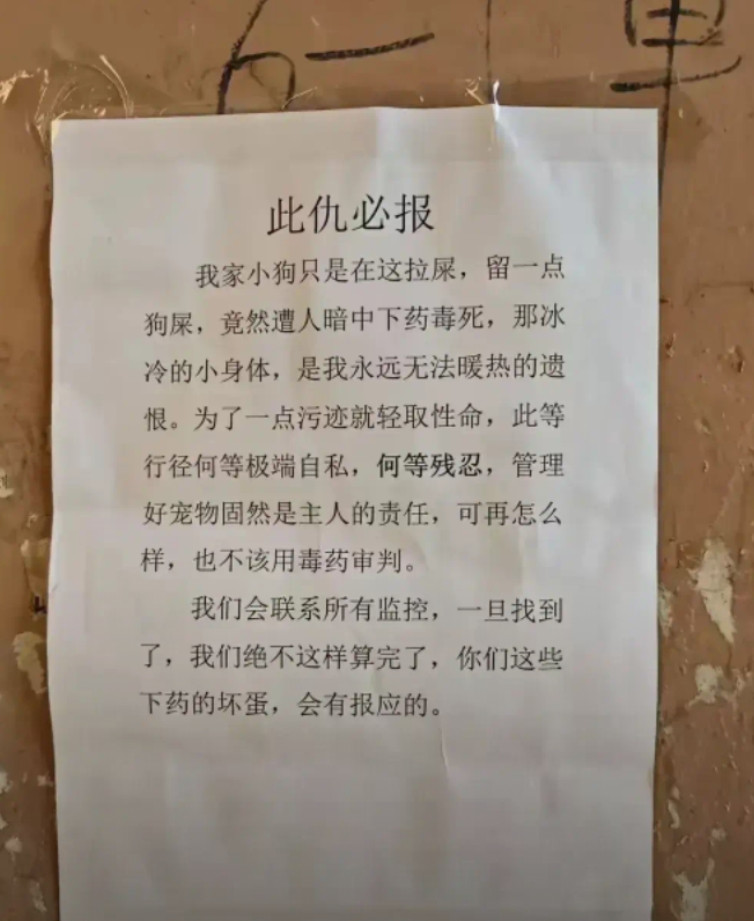 6一1单
此仇必报
我家小狗只是在这拉屎，留一点
狗屎，竟然遭人暗中下药毒死，那冰
冷的小身体，是我永远无法暖热的遗
恨。为了一点污迹就轻取性命，此等
行径何等极端自私，何等残忍，管理
好宠物固然是主人的责任，可再怎么
样，也不该用毒药审判。
我们会联系所有监控，一旦找到
了，我们绝不这样算完了，你们这些
下药的坏蛋，会有报应的。